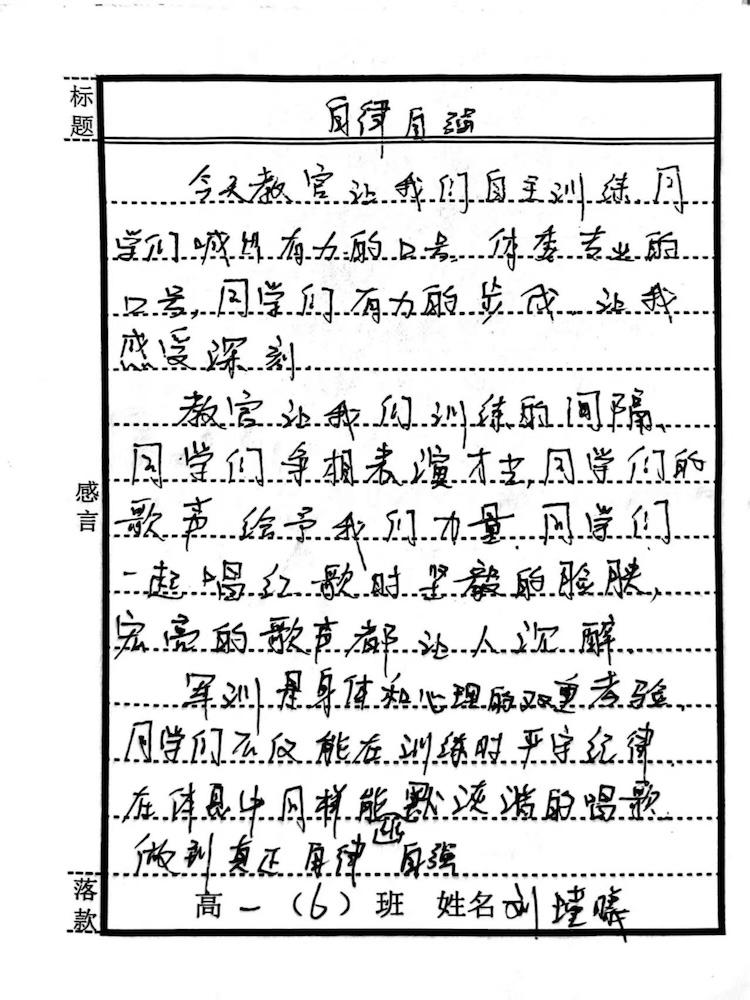 标题
自律自强
今天教官让我们自主训练,同
学们喊出有力的口号。体委专业的
口号,同学们有力的步伐,让我
感受深刻.
教官让我们训练的间隔、
同学们争相表演才艺,同学们的
歌声给予我们力量.同学们
一起唱红歌时坚毅的脸胦,
宏亮的歌声都让人沉醉.
感言
军训是身体和心理的双重考验,
同学们不仅能在训练时严守纪律,
在休息中同样能默 诙谐的唱歌.
做到真正自律 自强
落款
高一(6)班 姓名刘 曦